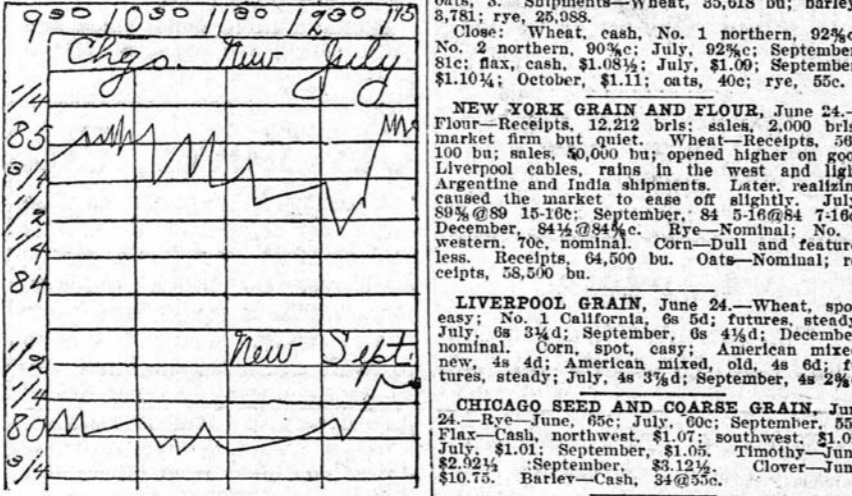 9³⁰ 10³⁰ 11³⁰ 12³⁰ 1¹⁵
Chgo. New July
1/4
85
3/4
1/2
1/4
84
New Sept.
1/2
1/4
80
3/4
oats, 3. Shipments—Wheat, 35,618 bu; barley
3,781; rye, 25,988.
Close: Wheat, cash, No. 1 northern, 92⅜c
No. 2 northern, 90⅜c; July, 92⅜c; September
81c; flax, cash, $1.08½; July, $1.09; September
$1.10¼; October, $1.11; oats, 40c; rye, 55c.
NEW YORK GRAIN AND FLOUR, June 24.—
Flour—Receipts, 12,212 brls; sales, 2,000 brls
market firm but quiet. Wheat—Receipts, 56
100 bu; sales, 50,000 bu; opened higher on goo
Liverpool cables, rains in the west and ligh
Argentine and India shipments. Later, realizin
caused the market to ease off slightly. July
89⅝@89 15-16c; September, 84 5-16@84 7-16c
December, 84½@84⅝c. Rye—Nominal; No.
western, 70c, nominal. Corn—Dull and feature
less. Receipts, 64,500 bu. Oats—Nominal; r
ceipts, 58,500 bu.
LIVERPOOL GRAIN, June 24.—Wheat, spo
easy; No. 1 California, 6s 5d; futures, steady
July, 6s 3¼d; September, 6s 4⅛d; Decembe
nominal. Corn, spot, easy; American mixe
new, 4s 4d; American mixed, old, 4s 6d; f
tures, steady; July, 4s 3⅞d; September, 4s 2⅜
CHICAGO SEED AND COARSE GRAIN, Jun
24.—Rye—June, 65c; July, 60c; September, 55
Flax—Cash, northwest, $1.07; southwest, $1.0
July, $1.01; September, $1.05. Timothy—Jun
$2.92½ :September, $3.12½. Clover—Jun
$10.75. Barley—Cash, 34@55c.